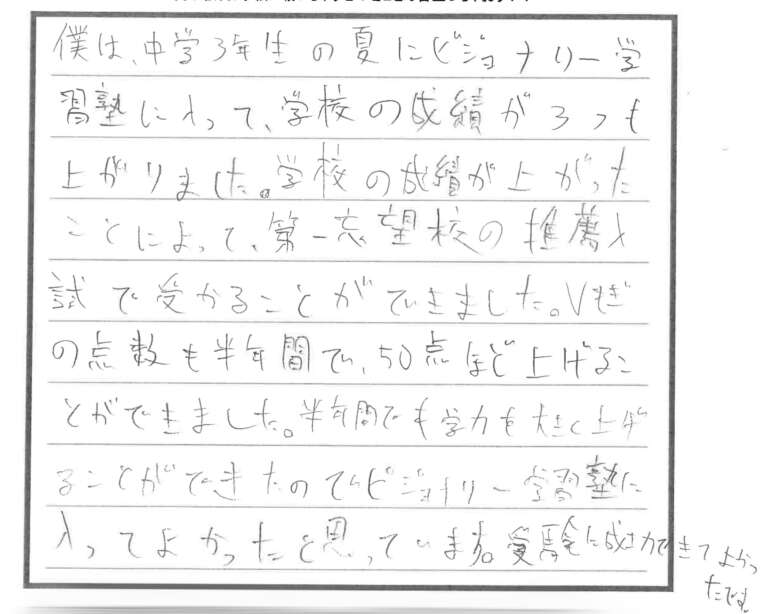 僕は、中学3年生の夏にビジョナリー学
習塾に入って、学校の成績が3つも
上がりました。学校の成績が上がった
ことによって、第一志望校の推薦入
試で受かることができました。Vもぎ
の点数も半年間で、50点ほど上げるこ
とができました。半年間でも学力を大きく上げ
ることができたのでビジョナリー学習塾に
入ってよかったと思っています。受験に成功できてよかっ
たです